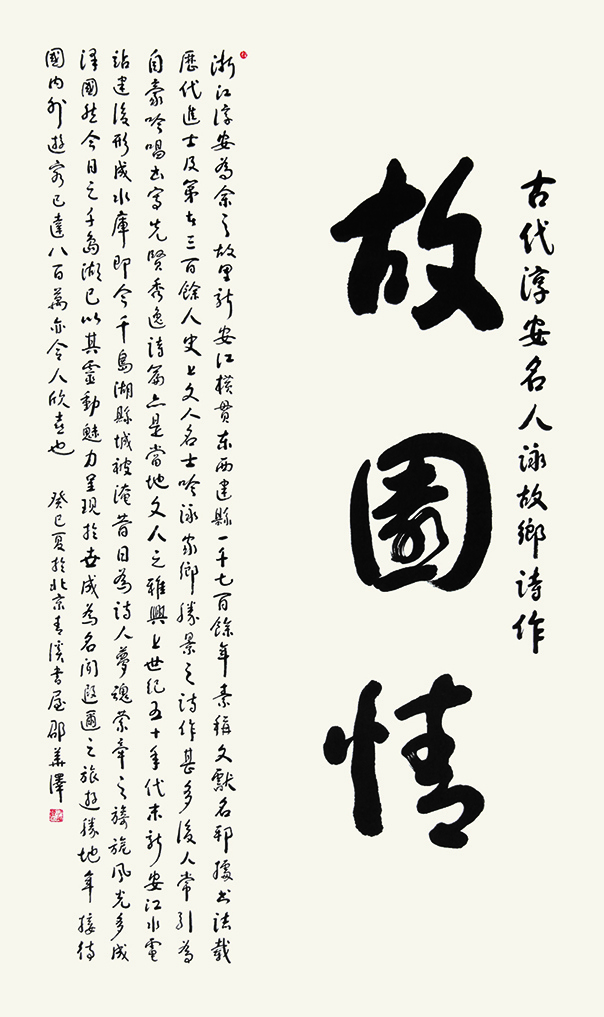 古代淳安名人詠故鄉詩作
故園情
浙江淳安為余之故里新安江橫貫东西建縣一千七百餘年素稱文獻名邦據书誌載
歷代進士及第在三百餘人史上文人名士吟詠家鄉勝景之詩作甚多後人常引為
自豪吟唱书寫先賢秀逸詩篇亦是當地文人之雅興上世紀五十年代末新安江水電
站建後形成水庫即今千島湖縣城被淹昔日為詩人夢魂縈牽之旖旎风光多成
澤國然今日之千島湖已以其靈動魅力呈現於世成為名闻遐邇之旅遊勝地年接待
國内外遊客已達八百萬亦令人欣喜也 癸巳夏於北京青溪書屋邵華澤